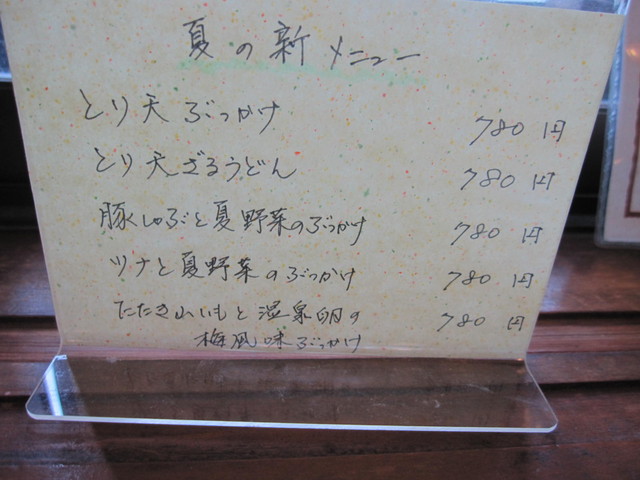 夏の新メニュー
とり天ぶっかけ 780円
とり天ざるうどん 780円
豚しゃぶと夏野菜のぶっかけ 780円
ツナと夏野菜のぶっかけ 780円
たたき山いもと温泉卵の 780円
梅風味ぶっかけ